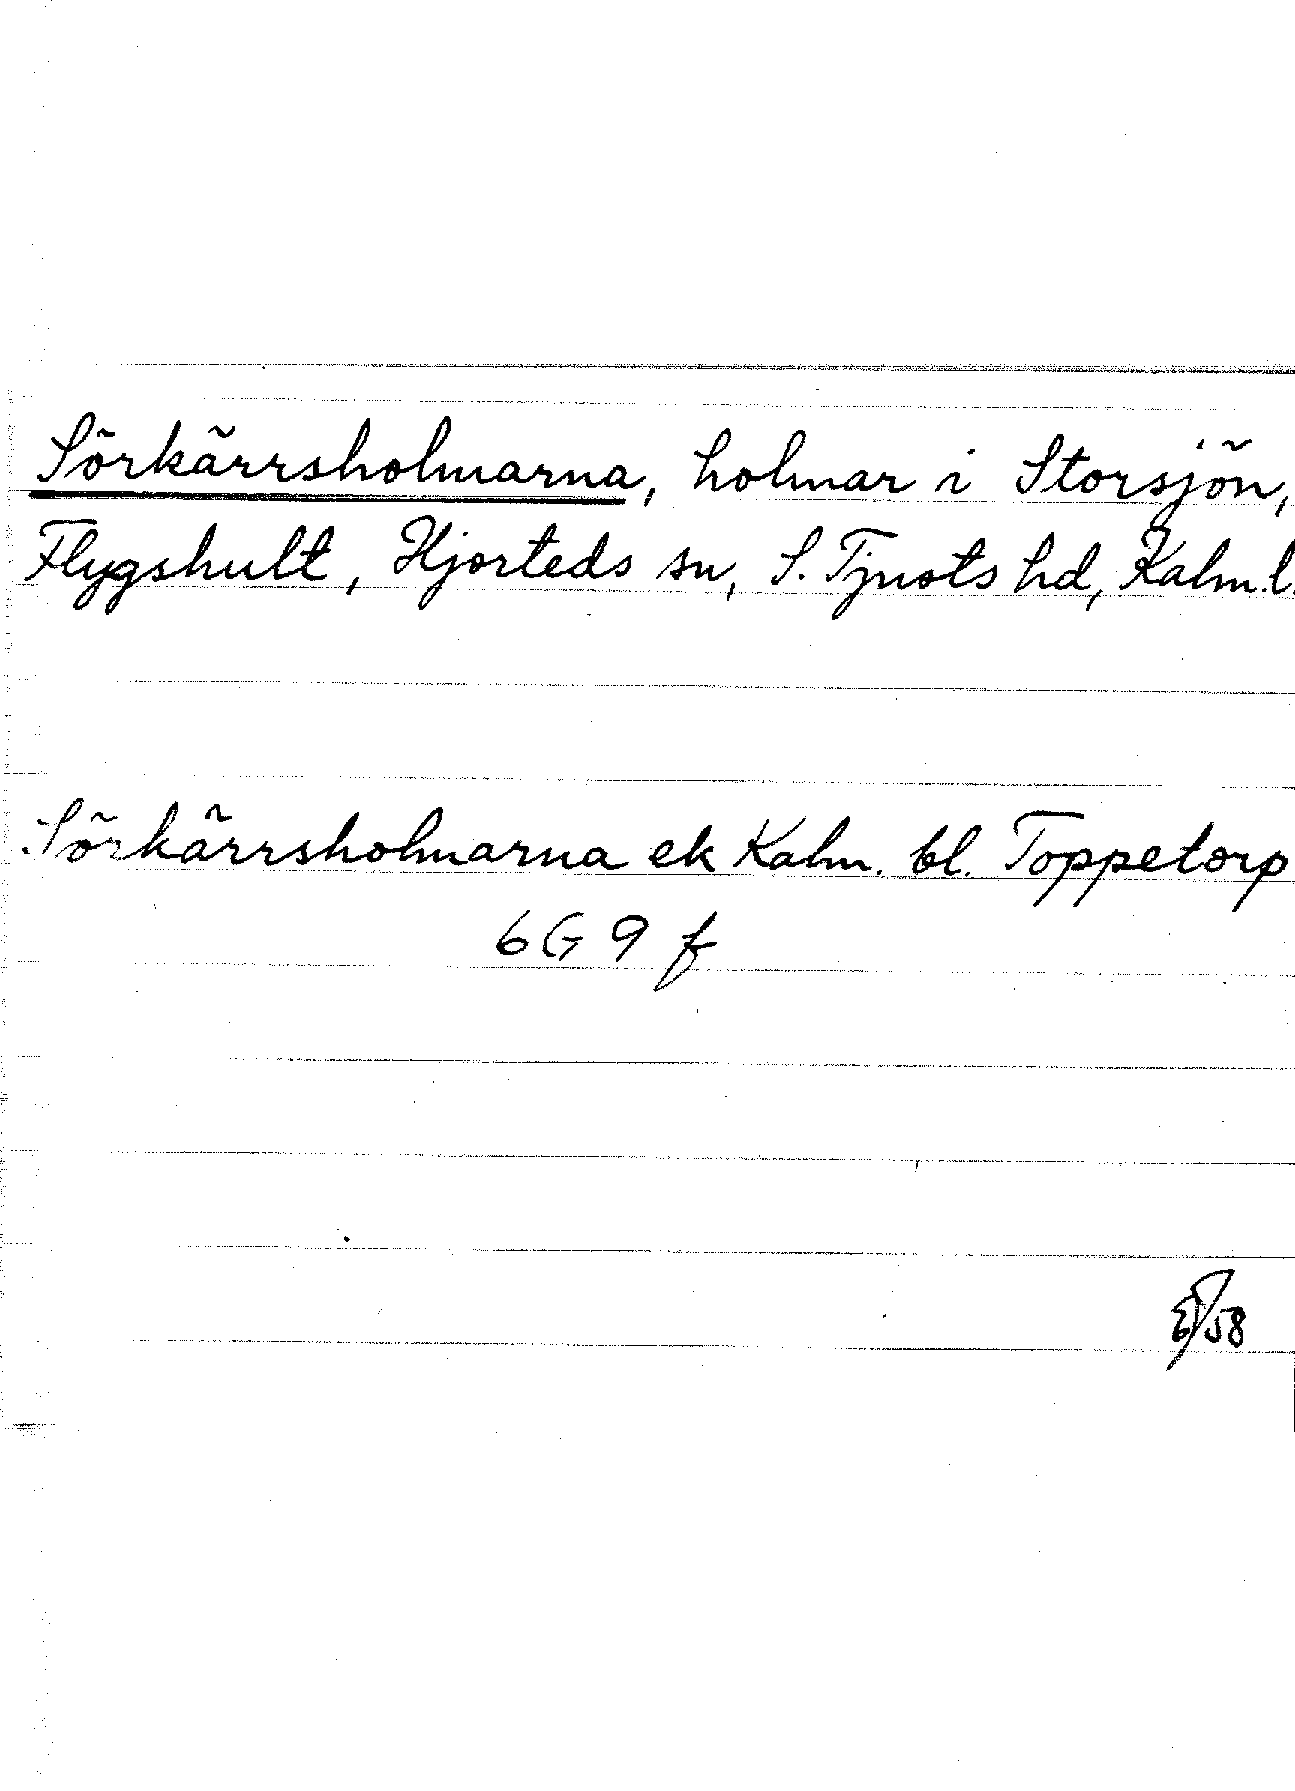 Sörkärrsholmarna, holmar i Storsjön,
Flygshult, Hjorteds sn, S. Tjusts hd, Kalm. l.
Sörkärrsholmarna ek Kalm. bl. Toppetorp
6G 9 f
58